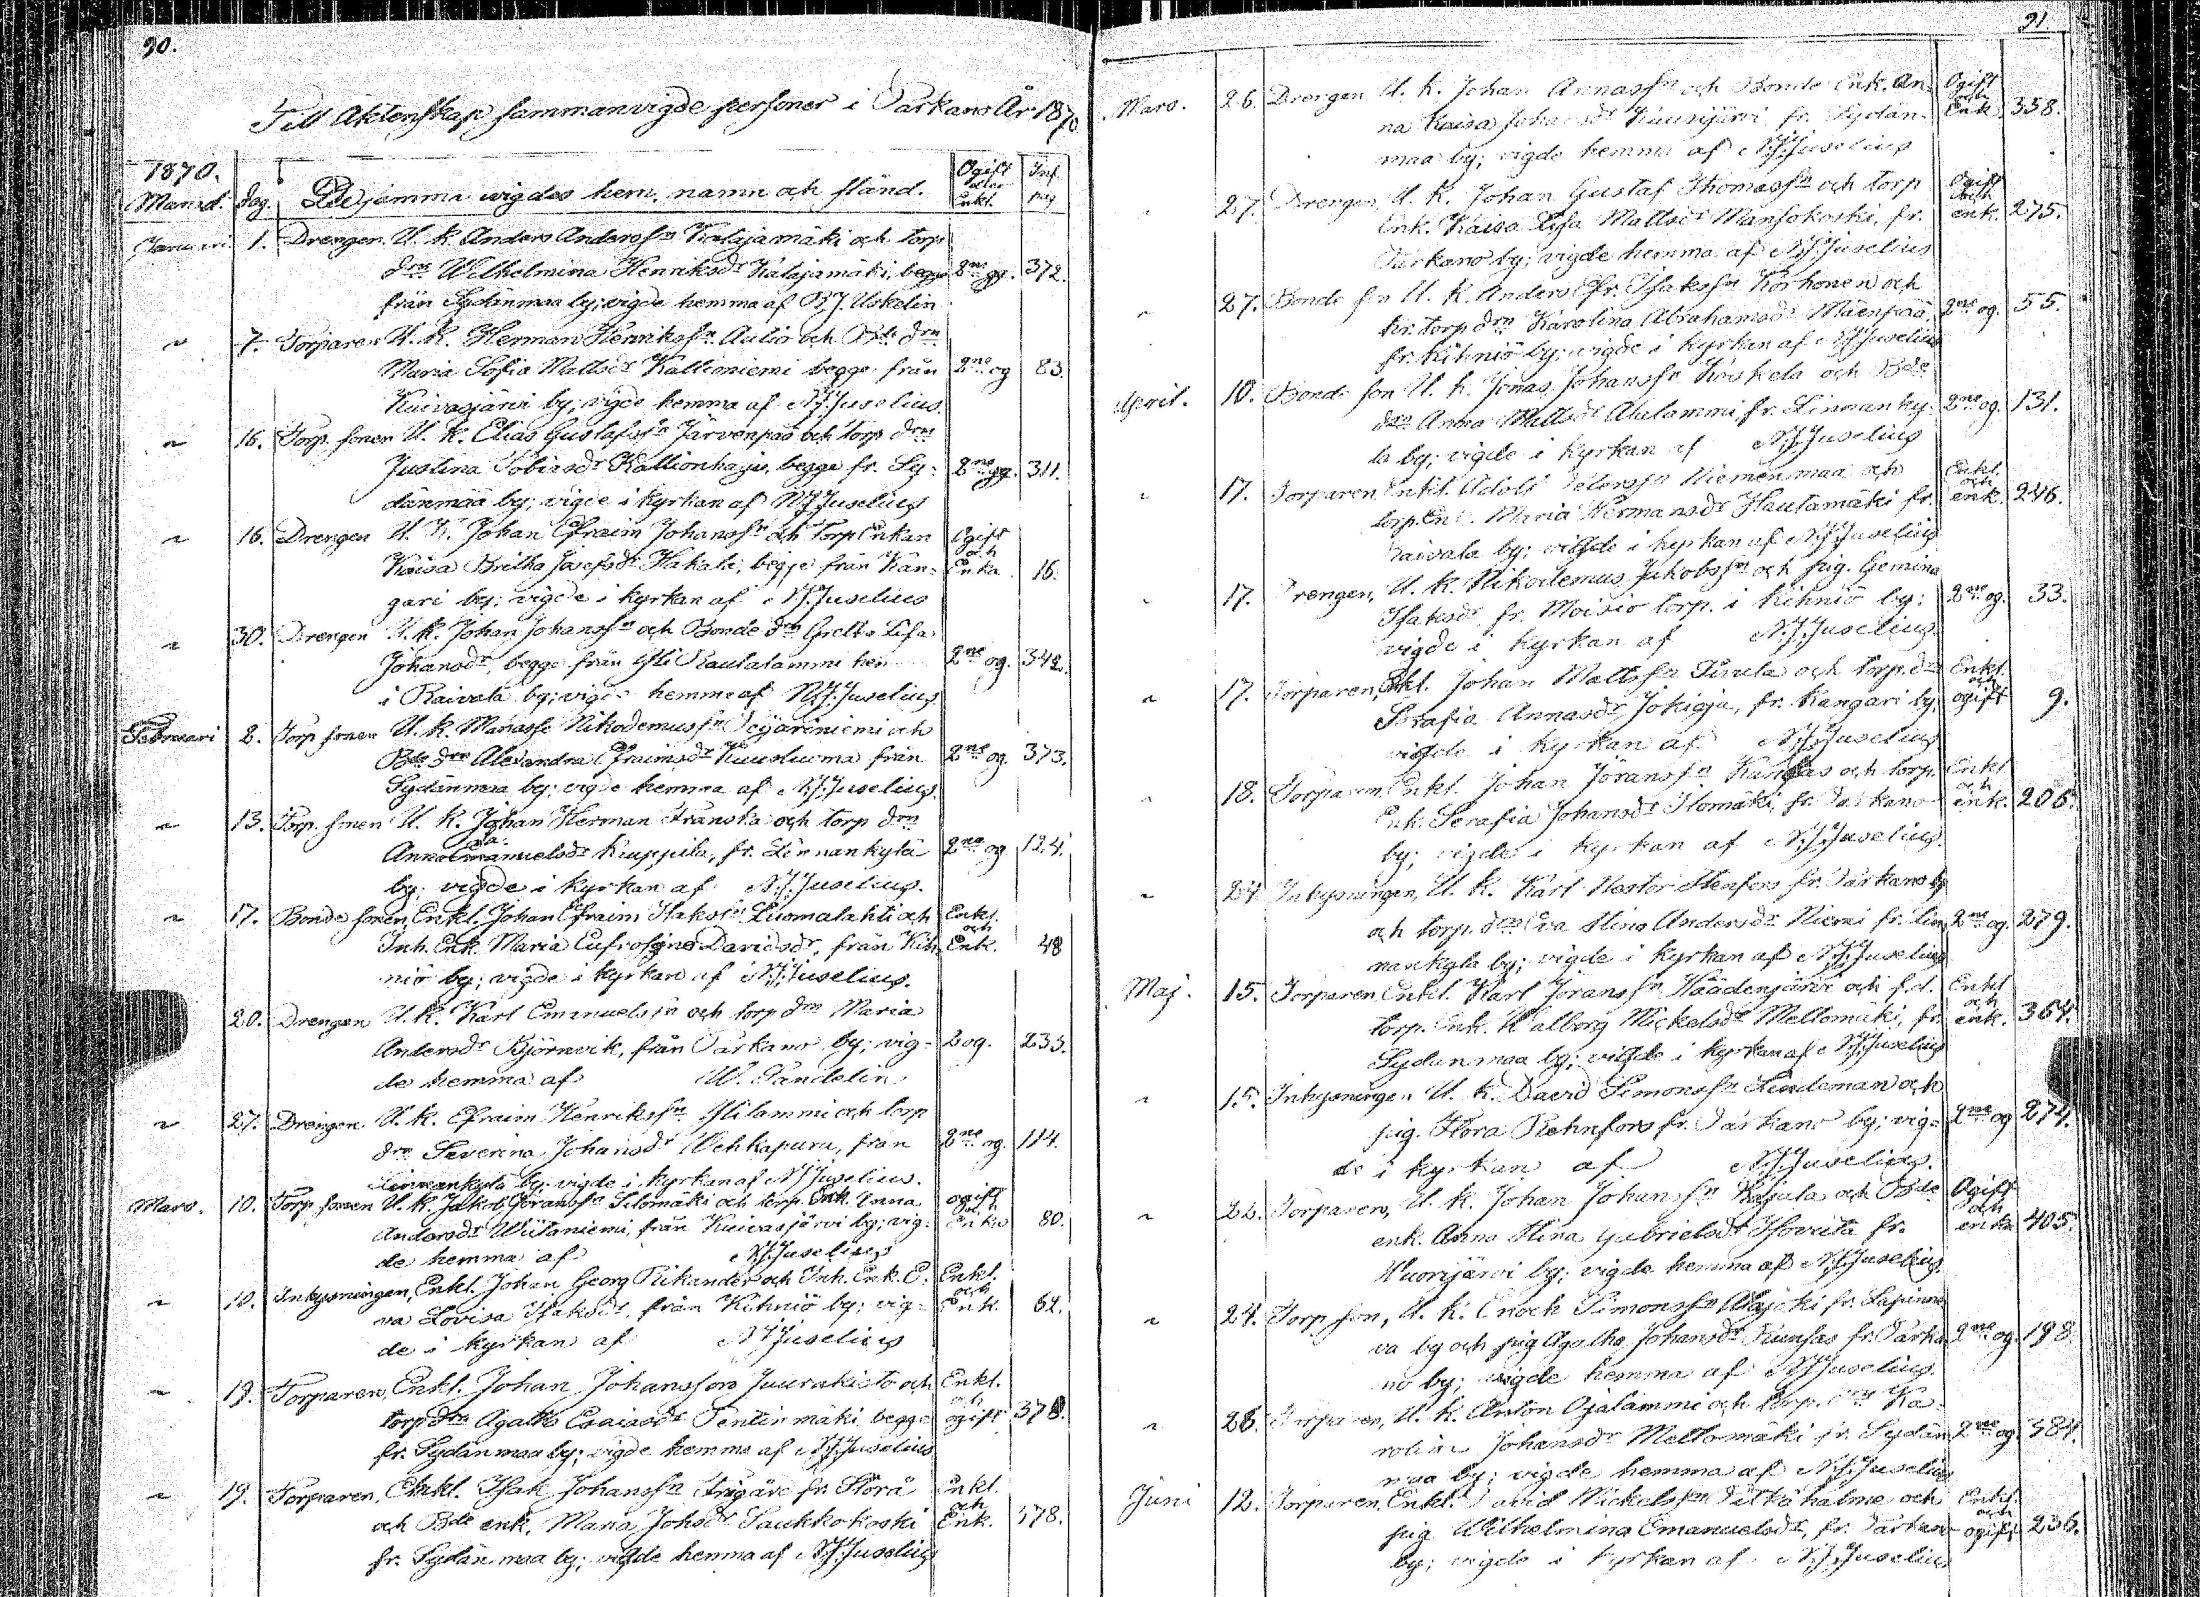 90.
Till Äktenskap sammanvigde personer i Parkano År 1870
1870.
Månad. dag. De som sammanvigdes hem, namn och stånd. Ogift eller Enkl. Inf. pag
Januari 1. Drengen U. k. Anders Andersson Kalajamäki och torp
drn Wilhelmina Henriksdr Kalajamäki, begge 2ne og. 372.
från Sydänmaa by; vigde hemma af B. J. Uskelin
" 7. Torparen U. k. Herman Henrikssn Aulio och Bde drn
Maria Sofia Mattsdr Kallioniemi begge från 2ne og 83.
Kuivasjärvi by; vigde hemma af N.J. Juselius.
" 16. Torp. sonen U. k. Elias Gustafssn Järvenpää och torp drn
Justina Tobiasdr Kallionharju, begge fr. Sy- 2ne og. 311.
dänmaa by; vigde i kyrkan af N.J. Juselius
" 16. Drengen U. k. Johan Efraim Johanssn och Torp Enkan Ogift
Kaisa Britha Josefsdr Hakala; begge från Kan- och Enka 16.
gari by; vigde i kyrkan af N.J. Juselius
" 30. Drengen U. k. Johan Johanssn och Bonde drn Greta Lisa
Johansdr, begge från Yli Rautalammi hem 2ne og. 342.
i Raivala by; vigde hemma af N.J. Juselius
Februari 2. Torp sonen U. k. Manasse Nikodemussn Teyäriniemi och
Bde drn Alexandra Efraimsdr Kuusluoma från 2ne og. 373.
Sydänmaa by; vigde hemma af N.J. Juselius.
" 13. Torp. sonen U. k. Johan Herman Franska och torp drn
Anna Emanuelsdr Kuppila, fr. Linnankylä 2ne og 124.
by; vigde i kyrkan af N.J. Juselius.
" 17. Bonde sonen, Enkl. Johan Efraim Isakssn Luomalahti och Enkl.
Inh. Enk. Maria Eufrosyna Davidsdr, från Kih- och Enk. 48
niö by; vigde i kyrkan af N.J. Juselius.
20. Drengen U. k. Karl Emanuelssn och torp drn Maria
Andersdr Björnvik, från Parkano by; vig- 2 og. 233.
de hemma af W. Pandelin
" 27. Drengen U. k. Efraim Henrikssn Ylilammi och torp
drn Severina Johansdr Vehkapuru, från 2ne og. 114.
Linnankylä by; vigde i kyrkan af N.J. Juselius.
Mars. 10. Torp sonen U. k. Jakob Göranssn Silomäki och torp. Enk. Anna ogift
Andersdr Wiitaniemi, från Kuivasjärvi by; vig- och Enka 80.
de hemma af N.J. Juselius
" 10. Inhysningen, Enkl. Johan Georg Rikander och Inh. Enk. E- Enkl.
va Lovisa Isaksdr, från Kihniö by; vig- och Enk. 62.
de i kyrkan af N.J. Juselius
" 19. Torparen, Enkl. Johan Johansson Juurakisto och Enkl.
torp drn Agatha Esaiasdr Pentinmäki begge och ogift 378.
fr. Sydänmaa by; vigde hemma af N.J. Juselius
" 19. Torparen, Enkl. Isak Johanssn Ängäre fr. Storå Enkl.
och Bde enk. Maria Johsdr Saukkokoski och Enk. 378.
fr. Sydänmaa by; vigde hemma af N.J. Juselius
91.
Mars. 26. Drengen U. k. Johan Annassn och Bonde Enk. An- Ogift
na Kaisa Johansdr Kuusijärvi fr. Sydän- och Enk. 358.
maa by; vigde hemma af N.J. Juselius
" 27. Drengen, U. k. Johan Gustaf Thomassn och torp Ogift
Enk. Kaisa Lisa Mattsdr Mansokoski, fr. och enk. 275.
Parkano by; vigde hemma af N.J. Juselius
" 27. Bonde sn U. k. Anders Efr. Isakssn Korhonen och
fr. torp drn Karolina Abrahamsdr Mäenpää, 2ne og. 55.
fr. Kihniö by; vigde i kyrkan af N.J. Juselius
April. 10. Bonde son U. k. Jonas Johanssn Koskela och Bde
drn Anna Mattsdr Alalammi, fr. Linnanky- 2ne og. 131.
lä by; vigde i kyrkan af N.J. Juselius
" 17. Torparen Enkl. Adolf Peterssn Niemenmaa och Enkl.
torp. En. Maria Hermansdr Hautamäki fr. och enk. 246.
Raivala by; vigde i kyrkan af N.J. Juselius
" 17. Drengen, U. k. Nikodemus Jakobssn och pig. Gemina
Isaksdr fr. Moisio torp. i Kihniö by; 2ne og. 33.
vigde i kyrkan af N.J. Juselius.
" 17. Torparen, Enkl. Johan Mattssn Turula och torp. dr Enkl.
Serafia Annasdr Jokioja, fr. Kangari by; och ogift 9.
vigde i kyrkan af N.J. Juselius
" 18. Torparen, Enkl. Johan Jöranssn Kangas och torp. Enkl
Enk. Serafia Johansdr Ilomäki, fr. Parkano och enk. 206.
by; vigde i kyrkan af N.J. Juselius.
" 24 Inhysningen, U. k. Karl Nestor Stenfors fr. Parkano by
och torp. drn Eva Stina Andersdr Niemi fr. Lin- 2ne og. 279.
nankylä by; vigde i kyrkan af N.J. Juselius
Maj. 15. Torparen Enkl. Karl Joranssn Häädenjärvi och f.d. Enkl
torp. Enk. Walborg Mickelsdr Mellomäki, fr och enk. 364.
Sydänmaa by; vigde i kyrkan af N.J. Juselius
" 15. Inhysningen U. k. David Simonssn Lindeman och
pig. Flora Rehnfors fr. Parkano by; vig- 2ne og 274.
de i kyrkan af N.J. Juselius.
" 22. Torparen, U. k. Johan Johanssn Kajula och Bde Ogift
enk. Anna Stina Gabrielsdr Isovita fr. och enka 405.
Vuorijärvi by; vigde hemma af N.J. Juselius.
" 24. Torp son, U. k. Enoch Simonssn Alajoki fr. Lapinne-
va by och pig Agatha Johansdr Kungas fr. Parka- 2ne og. 198.
no by; vigde hemma af N.J. Juselius
" 26. Torparen, U. k. Anton Ojalammi och torp. drn Ka-
rolina Johansdr Mellomäki fr. Sydän- 2ne og. 384.
maa by; vigde hemma af N.J. Juselius
Juni 12. Torparen, Enkl. David Mickelssn Pitkähalme och Enkl.
pig Wilhelmina Emanuelsdr, fr. Parkano och ogift 236.
by; vigde i kyrkan af N.J. Juselius